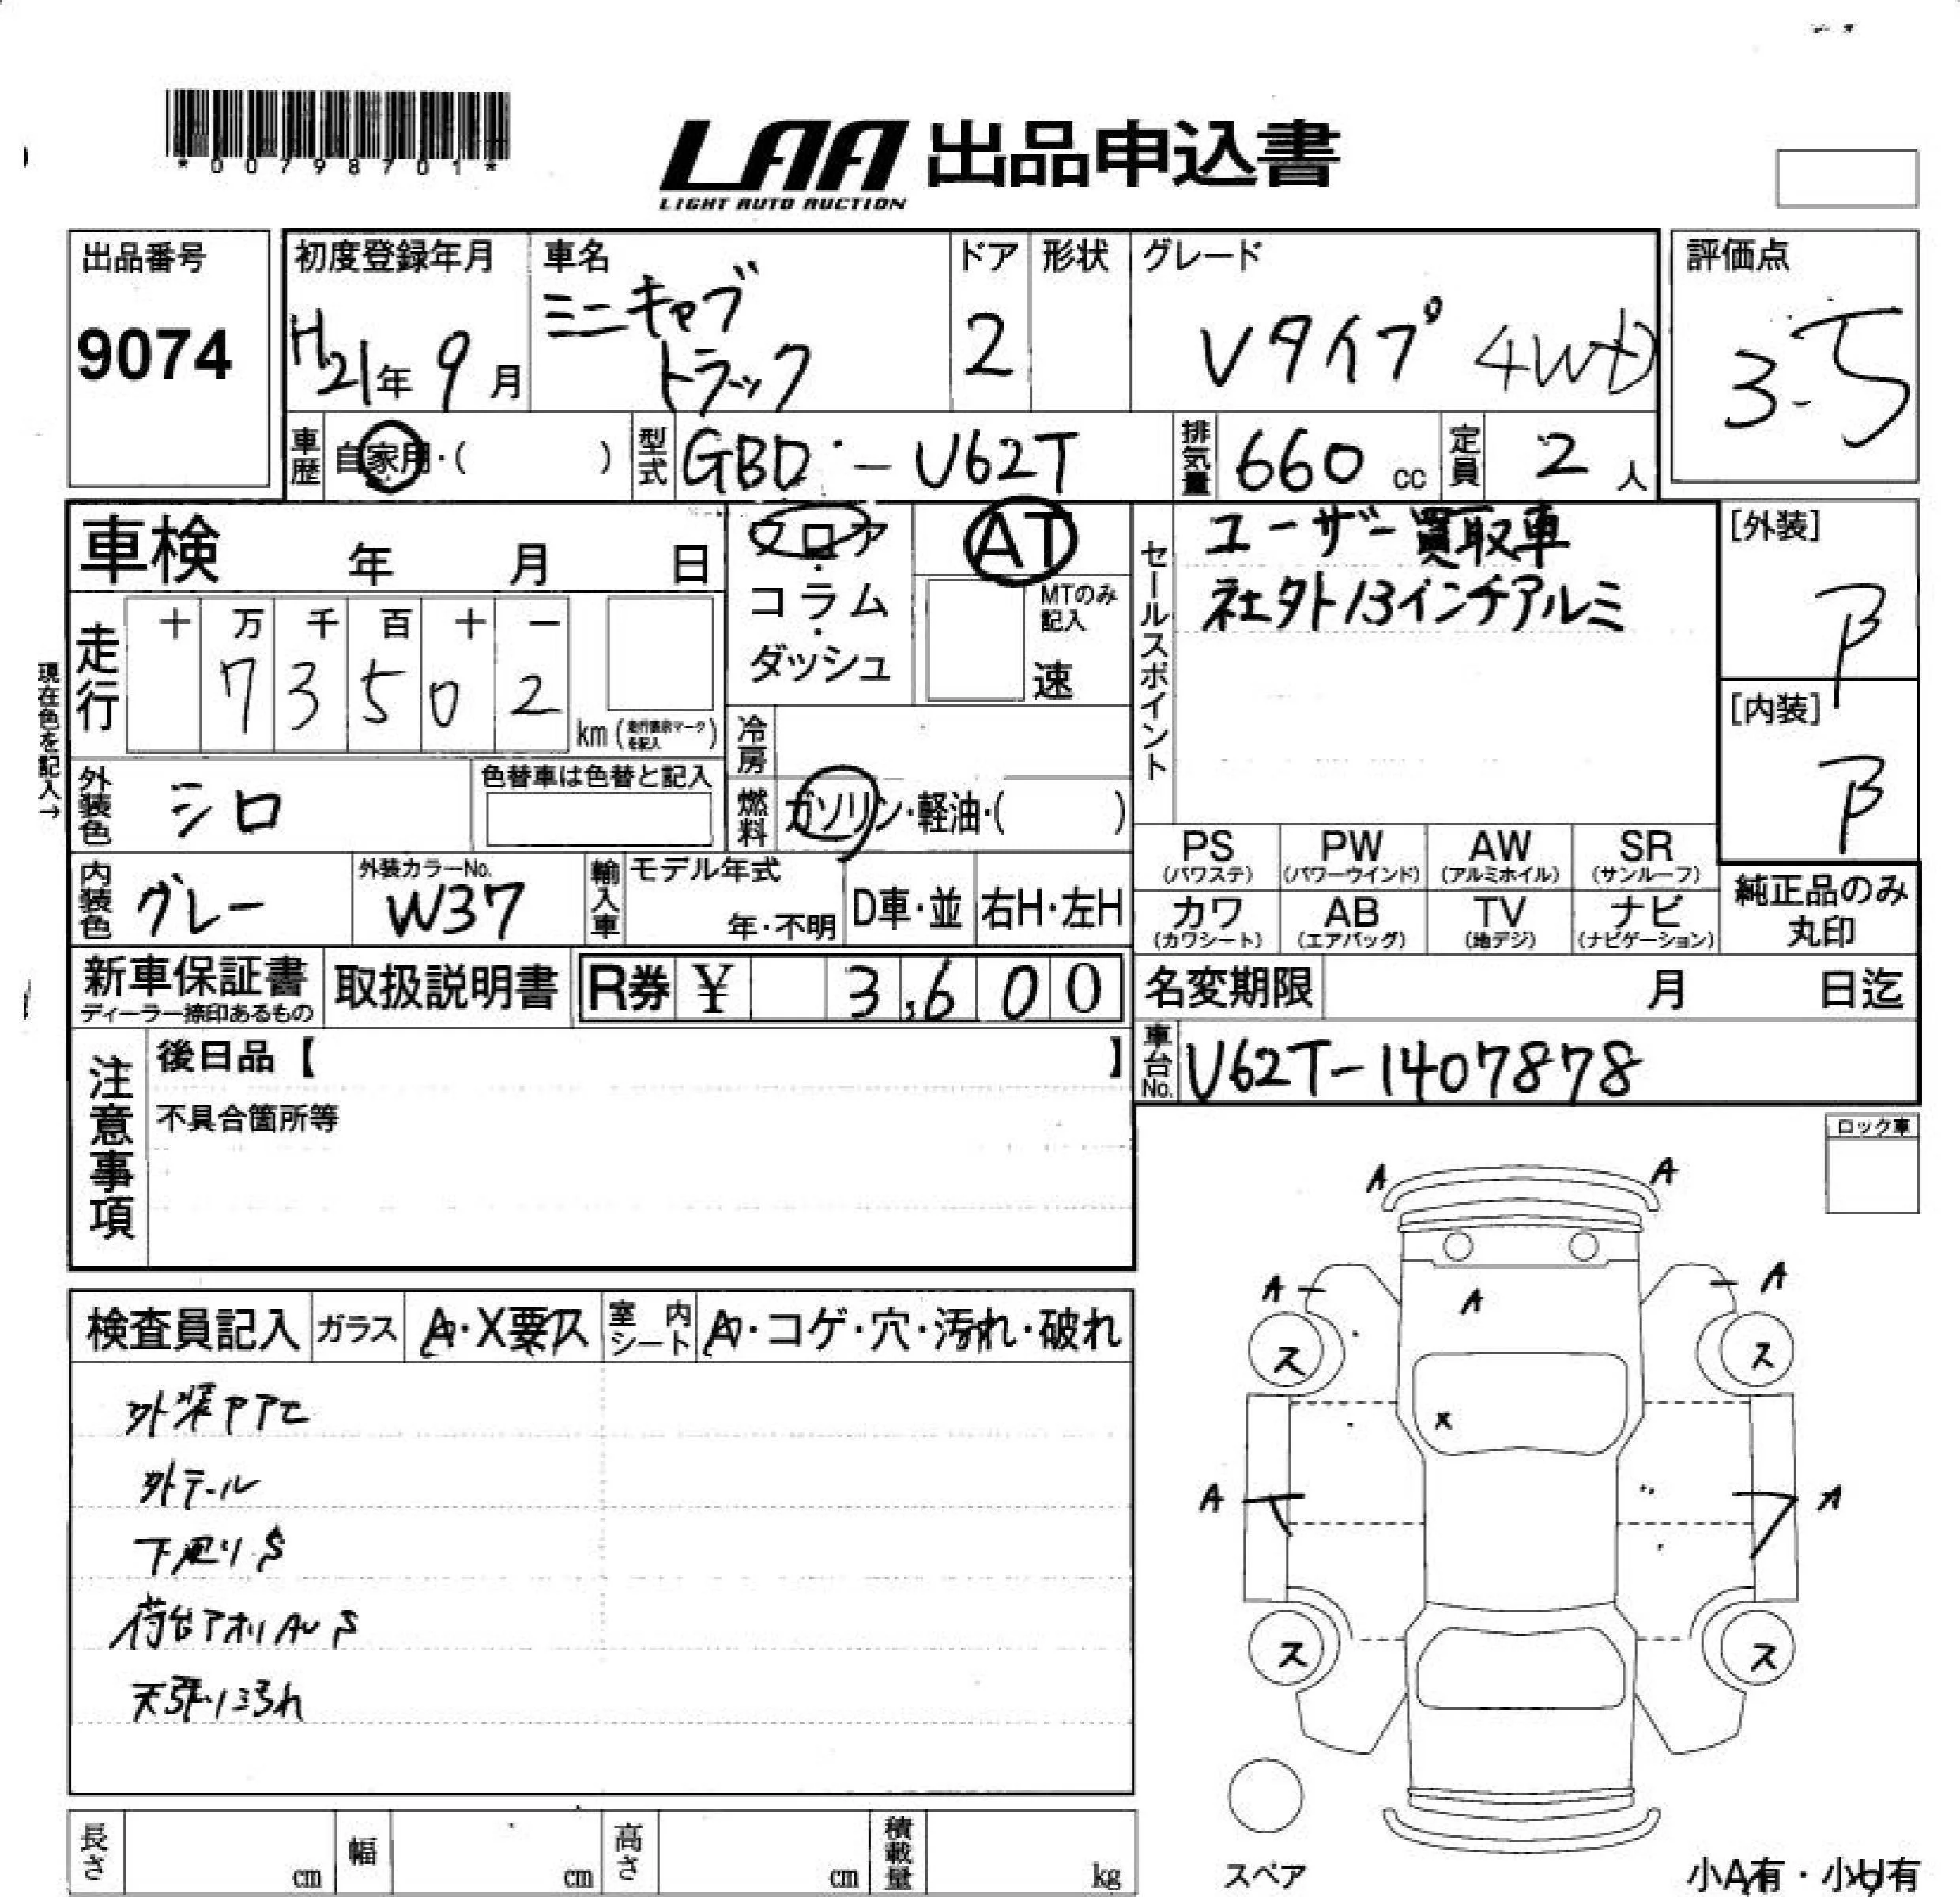 *00798701*
LAA 出品申込書
LIGHT AUTO AUCTION
出品番号
9074
初度登録年月
H21年 9月
車名
ミニキャブ
トラック
ドア
2
形状
グレード
Vタイプ 4WD
評価点
3.5
車歴
自家用・( )
型式
GBD - U62T
排気量
660 cc
定員
2 人
車検 年 月 日
フロア・コラム・ダッシュ
AT
MTのみ記入
速
セールスポイント
ユーザー買取車
社外13インチアルミ
[外装]
B
[内装]
B
現在色を記入→
走行
十 万 千 百 十 一
7 3 5 0 2
km (走行表示マークを記入)
冷房
燃料
ガソリン・軽油・( )
外装色
シロ
色替車は色替と記入
内装色
グレー
外装カラーNo.
W37
輸入車
モデル年式
年・不明
D車・並
右H・左H
PS
(パワステ)
PW
(パワーウインド)
AW
(アルミホイル)
SR
(サンルーフ)
カワ
(カワシート)
AB
(エアバッグ)
TV
(地デジ)
ナビ
(ナビゲーション)
純正品のみ
丸印
新車保証書
ディーラー捺印あるもの
取扱説明書
R券 ¥ 3,600
名変期限 月 日迄
車台No.
U62T-1407878
注意事項
後日品【 】
不具合箇所等
ロック車
検査員記入
ガラス
A・X要ス
室内シート
A・コゲ・穴・汚れ・破れ
外テール
下廻りS
荷台アオリAUS
天張り汚れ
A A
A A
A
ス ス
X
A A
ス ス
スペア
小A有・小U有
長さ cm
幅 cm
高さ cm
積載量 kg